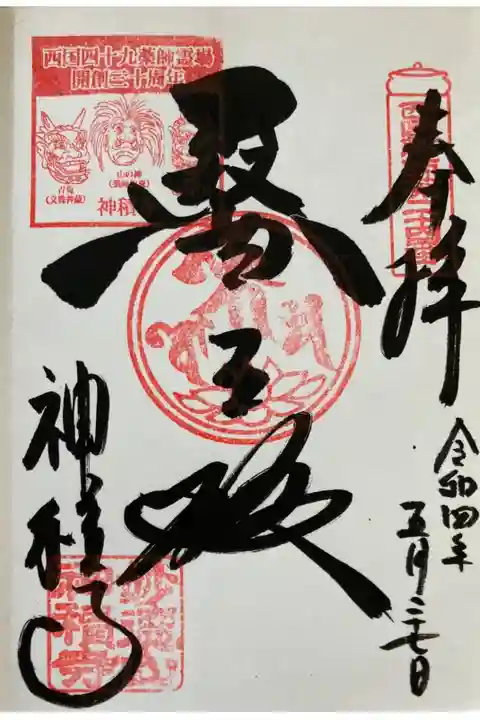 奉拝
令和四年
五月二十七日
醫王殿
神積寺
西国四十九薬師霊場
開創三十周年
山の神
青鬼
神積
神積寺